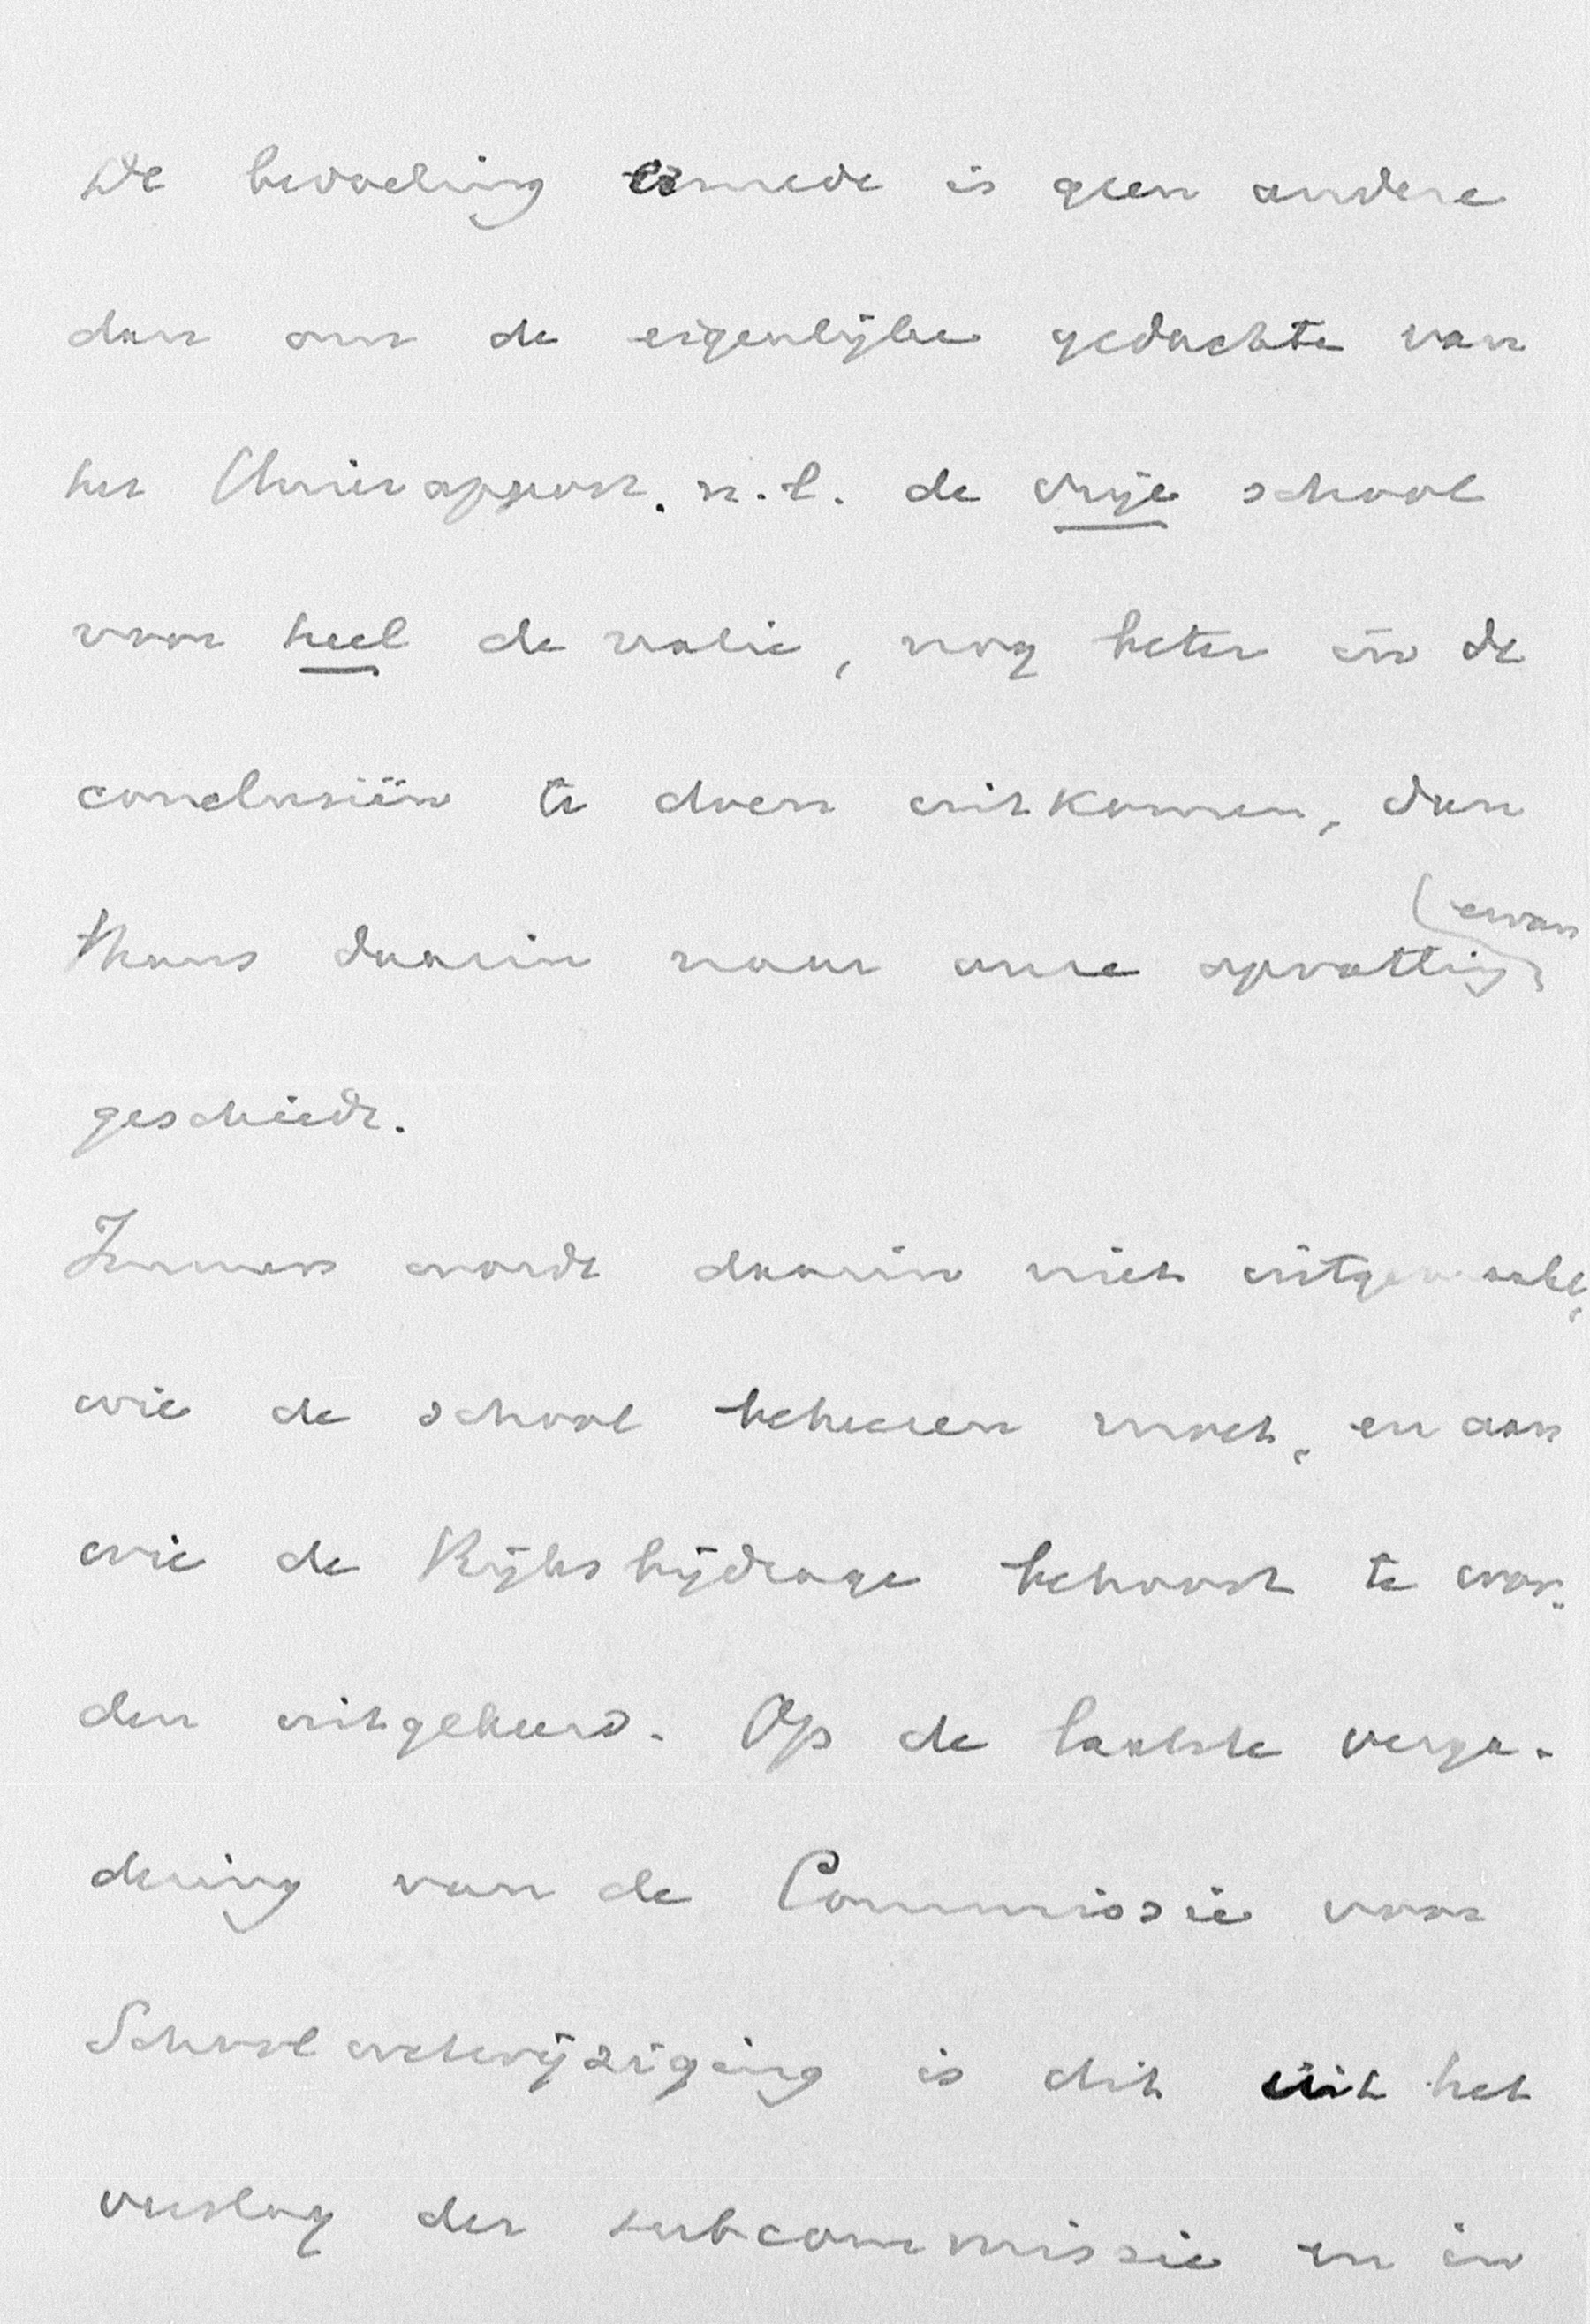 De bedoeling ermede is geen andere
dan om de eigenlijke gedachte van
het Unierapport. n.l. de vrije school
voor heel de natie, nog beter in de
conclusiën te doen uitkomen, dan
thans daarin naar onze opvatting ervan
geschiedt.
Immers wordt daarin niet uitgemaakt,
wie de school beheeren moet, en aan
wie de Rijksbijdrage behoort te wor-
den uitgekeerd. Op de laatste verga-
dering van de Commissie voor
Schoolwetwijziging is dit uit het
verslag der subcommissie en in